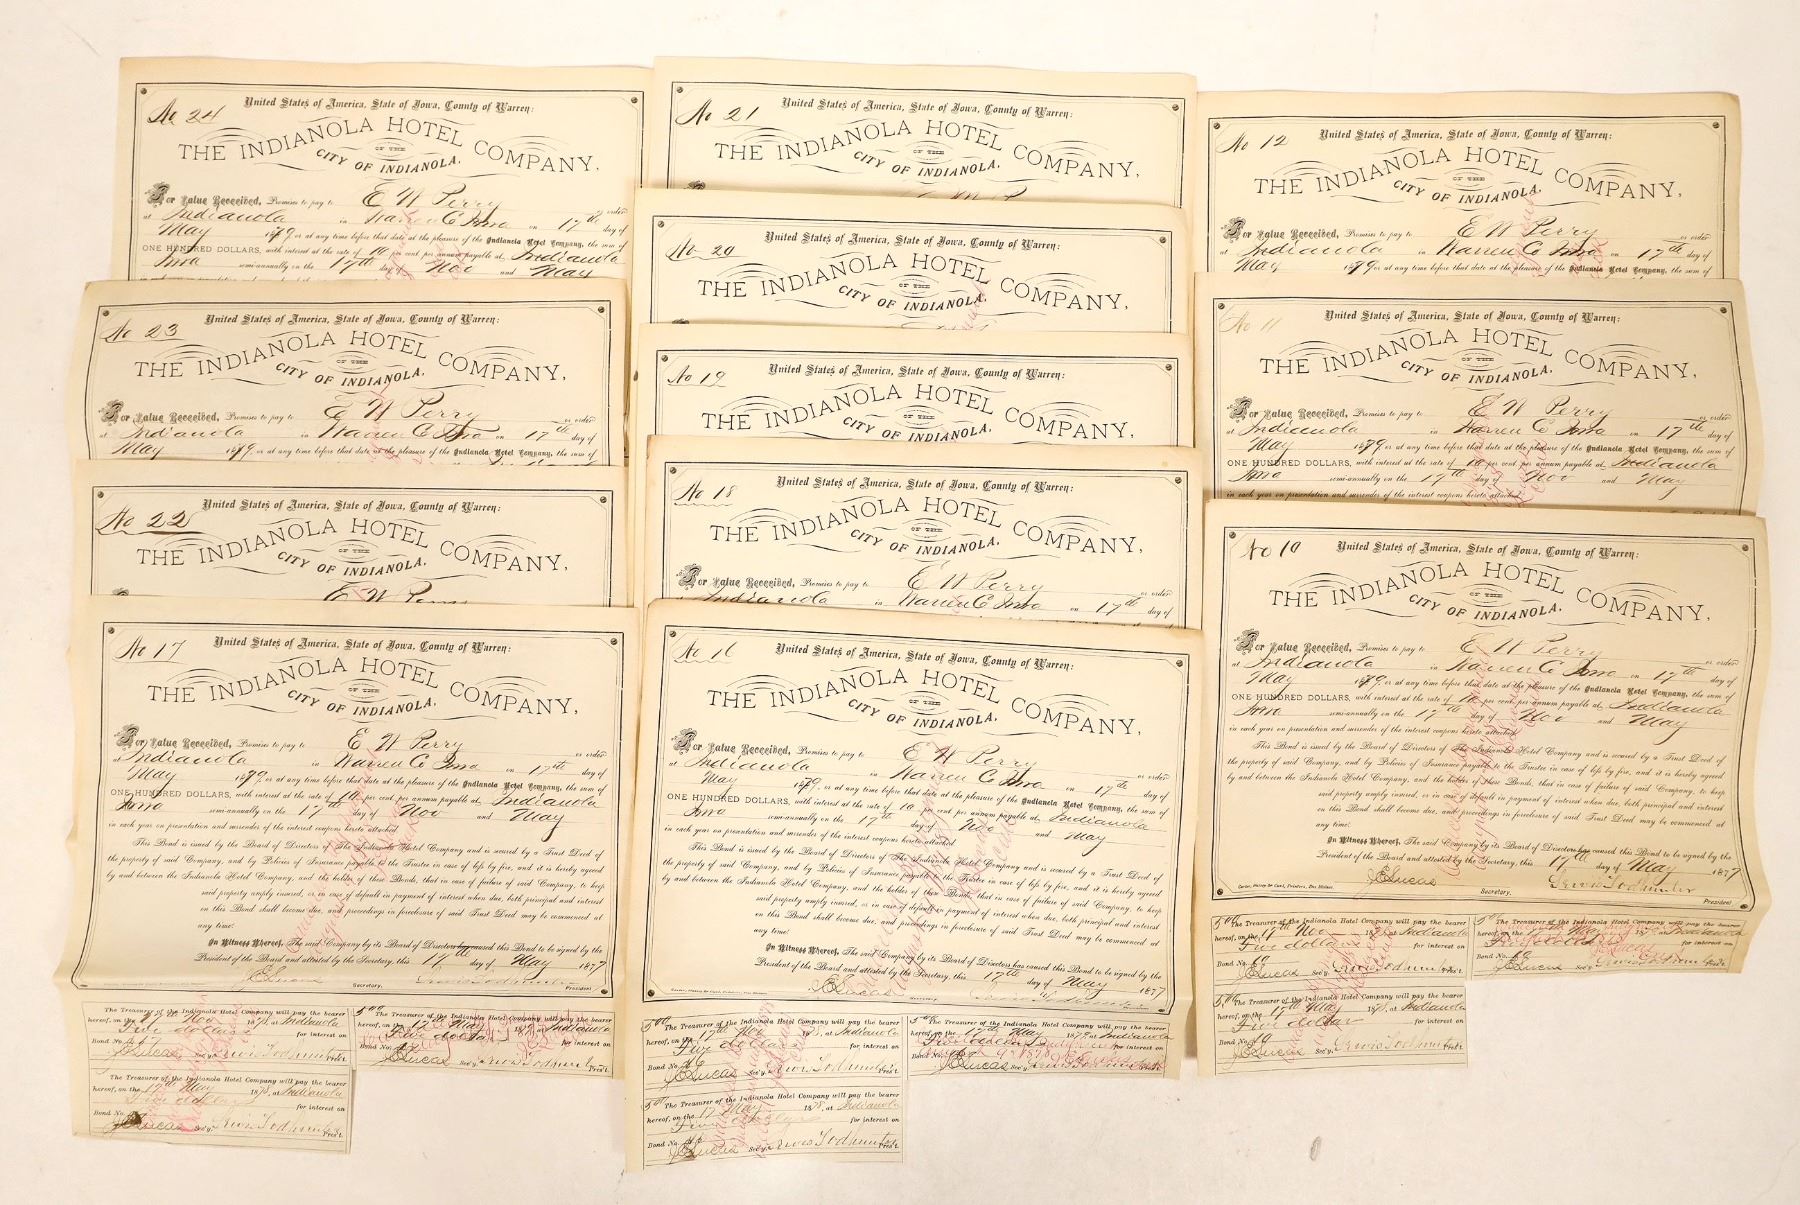 No 24
United States of America, State of Iowa, County of Warren:
THE INDIANOLA HOTEL COMPANY,
OF THE
CITY OF INDIANOLA,
For Value Received, Promises to pay to E W Perry or order
at Indianola in Warren Co Iowa on 17th day of
May 1879, or at any time before that date at the pleasure of the Indianola Hotel Company, the sum of
ONE HUNDRED DOLLARS, with interest at the rate of 10 per cent per annum payable at Indianola
Iowa semi-annually on the 17th day of Nov and May
No 23
United States of America, State of Iowa, County of Warren:
THE INDIANOLA HOTEL COMPANY,
OF THE
CITY OF INDIANOLA,
For Value Received, Promises to pay to E W Perry or order
at Indianola in Warren Co Iowa on 17th day of
May 1879, or at any time before that date at the pleasure of the Indianola Hotel Company, the sum of
No 22
United States of America, State of Iowa, County of Warren:
THE INDIANOLA HOTEL COMPANY,
OF THE
CITY OF INDIANOLA,
E W Perry
No 17
United States of America, State of Iowa, County of Warren:
THE INDIANOLA HOTEL COMPANY,
OF THE
CITY OF INDIANOLA,
For Value Received, Promises to pay to E W Perry or order
at Indianola in Warren Co Iowa on 17th day of
May 1879, or at any time before that date at the pleasure of the Indianola Hotel Company, the sum of
ONE HUNDRED DOLLARS, with interest at the rate of 10 per cent per annum payable at Indianola
Iowa semi-annually on the 17 day of Nov and May
in each year on presentation and surrender of the interest coupons hereto attached
This Bond is issued by the Board of Directors of The Indianola Hotel Company and is secured by a Trust Deed of
the property of said Company, and by Policies of Insurance payable to the Trustee in case of loss by fire, and it is hereby agreed
by and between the Indianola Hotel Company, and the holder of these Bonds, that in case of failure of said Company, to keep
said property amply insured, or in case of default in payment of interest when due, both principal and interest
on this Bond shall become due, and proceedings in foreclosure of said Trust Deed may be commenced at
any time.
In Witness Whereof, The said Company by its Board of Directors has caused this Bond to be signed by the
President of the Board and attested by the Secretary, this 17th day of May 1877
J E Lucas Secretary. Lewis Todhunter President
The Treasurer of the Indianola Hotel Company will pay the bearer
hereof, on the 17 Nov 1878, at Indianola
Five dollars for interest on
Bond No. 17
J E Lucas Sec'y. Lewis Todhunter Pres't.
5.00 The Treasurer of the Indianola Hotel Company will pay the bearer
hereof, on the 17th May 1879, at Indianola
Five dollars for interest on
Bond No. 17
J E Lucas Sec'y. Lewis Todhunter Pres't.
The Treasurer of the Indianola Hotel Company will pay the bearer
hereof, on the 17 May 1878, at Indianola
Five dollars for interest on
Bond No.
J E Lucas Sec'y. Lewis Todhunter Pres't.
No 21
United States of America, State of Iowa, County of Warren:
THE INDIANOLA HOTEL COMPANY,
OF THE
CITY OF INDIANOLA,
No 20
United States of America, State of Iowa, County of Warren:
THE INDIANOLA HOTEL COMPANY,
OF THE
CITY OF INDIANOLA,
No 19
United States of America, State of Iowa, County of Warren:
THE INDIANOLA HOTEL COMPANY,
OF THE
CITY OF INDIANOLA,
No 18
United States of America, State of Iowa, County of Warren:
THE INDIANOLA HOTEL COMPANY,
OF THE
CITY OF INDIANOLA,
For Value Received, Promises to pay to E W Perry or order
Indianola in Warren Co Iowa on 17th day of
No 16
United States of America, State of Iowa, County of Warren:
THE INDIANOLA HOTEL COMPANY,
OF THE
CITY OF INDIANOLA,
For Value Received, Promises to pay to E W Perry or order
at Indianola in Warren Co Iowa on 17th day of
May 1879, or at any time before that date at the pleasure of the Indianola Hotel Company, the sum of
ONE HUNDRED DOLLARS, with interest at the rate of 10 per cent per annum payable at Indianola
Iowa semi-annually on the 17th day of Nov and May
in each year on presentation and surrender of the interest coupons hereto attached
This Bond is issued by the Board of Directors of The Indianola Hotel Company and is secured by a Trust Deed of
the property of said Company, and by Policies of Insurance payable to the Trustee in case of loss by fire, and it is hereby agreed
by and between the Indianola Hotel Company, and the holder of these Bonds, that in case of failure of said Company, to keep
said property amply insured, or in case of default in payment of interest when due, both principal and interest
on this Bond shall become due, and proceedings in foreclosure of said Trust Deed may be commenced at
any time.
In Witness Whereof, The said Company by its Board of Directors has caused this Bond to be signed by the
President of the Board and attested by the Secretary, this 17th day of May 1877
J E Lucas Secretary. Lewis Todhunter President
5.00 The Treasurer of the Indianola Hotel Company will pay the bearer
hereof, on the 17th Nov 1878, at Indianola
Five dollars for interest on
Bond No. 16
J E Lucas Sec'y. Lewis Todhunter Pres't.
5.00 The Treasurer of the Indianola Hotel Company will pay the bearer
hereof, on the 17th May 1879, at Indianola
Five dollars for interest on
Bond No. 16
J E Lucas Sec'y. Lewis Todhunter Pres't.
5.00 The Treasurer of the Indianola Hotel Company will pay the bearer
hereof, on the 17 May 1878, at Indianola
Five dollars for interest on
Bond No. 16
J E Lucas Sec'y. Lewis Todhunter Pres't.
No 12
United States of America, State of Iowa, County of Warren:
THE INDIANOLA HOTEL COMPANY,
OF THE
CITY OF INDIANOLA,
For Value Received, Promises to pay to E W Perry or order
at Indianola in Warren Co Iowa on 17th day of
May 1879, or at any time before that date at the pleasure of the Indianola Hotel Company, the sum of
No 11
United States of America, State of Iowa, County of Warren:
THE INDIANOLA HOTEL COMPANY,
OF THE
CITY OF INDIANOLA,
For Value Received, Promises to pay to E W Perry or order
at Indianola in Warren Co Iowa on 17th day of
May 1879, or at any time before that date at the pleasure of the Indianola Hotel Company, the sum of
ONE HUNDRED DOLLARS, with interest at the rate of 10 per cent per annum payable at Indianola
Iowa semi-annually on the 17th day of Nov and May
in each year on presentation and surrender of the interest coupons hereto attached
No 10
United States of America, State of Iowa, County of Warren:
THE INDIANOLA HOTEL COMPANY,
OF THE
CITY OF INDIANOLA,
For Value Received, Promises to pay to E W Perry or order
at Indianola in Warren Co Iowa on 17th day of
May 1879, or at any time before that date at the pleasure of the Indianola Hotel Company, the sum of
ONE HUNDRED DOLLARS, with interest at the rate of 10 per cent per annum payable at Indianola
Iowa semi-annually on the 17th day of Nov and May
in each year on presentation and surrender of the interest coupons hereto attached
This Bond is issued by the Board of Directors of The Indianola Hotel Company and is secured by a Trust Deed of
the property of said Company, and by Policies of Insurance payable to the Trustee in case of loss by fire, and it is hereby agreed
by and between the Indianola Hotel Company, and the holder of these Bonds, that in case of failure of said Company, to keep
said property amply insured, or in case of default in payment of interest when due, both principal and interest
on this Bond shall become due, and proceedings in foreclosure of said Trust Deed may be commenced at
any time.
In Witness Whereof, The said Company by its Board of Directors has caused this Bond to be signed by the
President of the Board and attested by the Secretary, this 17th day of May 1877
J E Lucas Secretary. Lewis Todhunter President
5.00 The Treasurer of the Indianola Hotel Company will pay the bearer
hereof, on the 17th Nov 1878, at Indianola
Five dollars for interest on
Bond No. 10
J E Lucas Sec'y. Lewis Todhunter Pres't.
5.00 The Treasurer of the Indianola Hotel Company will pay the bearer
hereof, on the 17th May 1879, at Indianola
Five dollars for interest on
Bond No. 10
J E Lucas Sec'y. Lewis Todhunter Pres't.
5.00 The Treasurer of the Indianola Hotel Company will pay the bearer
hereof, on the 17th May 1878, at Indianola
Five dollars for interest on
Bond No. 10
J E Lucas Sec'y. Lewis Todhunter Pres't.